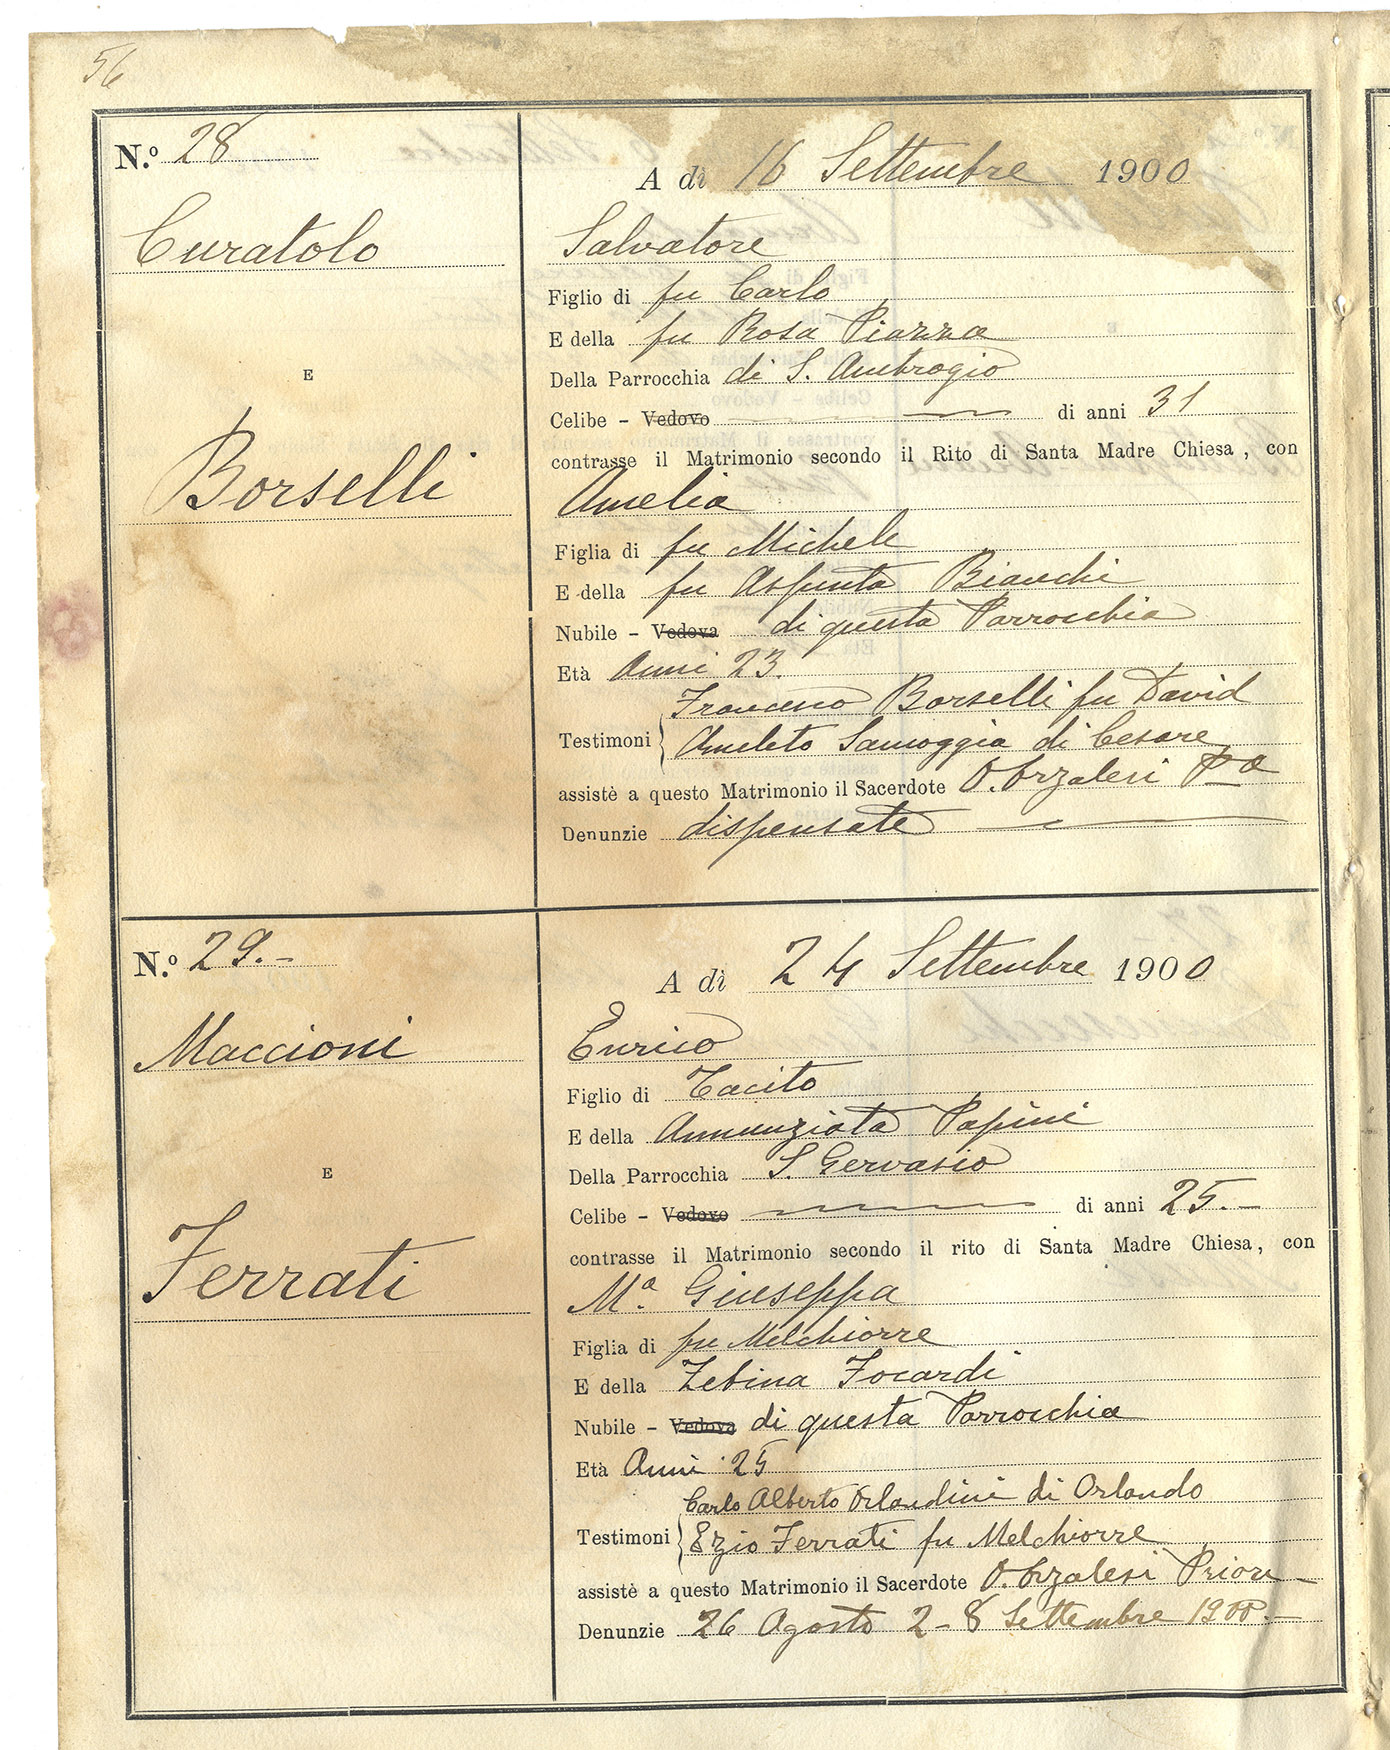 56
N.º 28
A dì 16 Settembre 1900
Curatolo
Salvatore
Figlio di fu Carlo
E della fu Rosa Piazza
E
Della Parrocchia di S. Ambrogio
Celibe - Vedovo di anni 31
contrasse il Matrimonio secondo il Rito di Santa Madre Chiesa, con
Borselli
Amelia
Figlia di fu Michele
E della fu Assunta Bianchi
Nubile - Vedova di questa Parrocchia
Età Anni 23.
Francesco Borselli fu David
Testimoni Amleto Samoggia di Cesare
assistè a questo Matrimonio il Sacerdote O. Orzalesi
Denunzie dispensate
N.º 29.-
A dì 24 Settembre 1900
Maccioni
Enrico
Figlio di Tacito
E della Annunziata Papini
E
Della Parrocchia S. Gervasio
Celibe - Vedovo di anni 25.-
contrasse il Matrimonio secondo il rito di Santa Madre Chiesa, con
Ferrati
Mª. Giuseppa
Figlia di fu Melchiorre
E della Zebina Focardi
Nubile - Vedova di questa Parrocchia
Età Anni 25
Carlo Alberto Orlandini di Orlando
Testimoni Ezio Ferrati fu Melchiorre
assistè a questo Matrimonio il Sacerdote O. Orzalesi Priore
Denunzie 26 Agosto 2-8 Settembre 1900.-